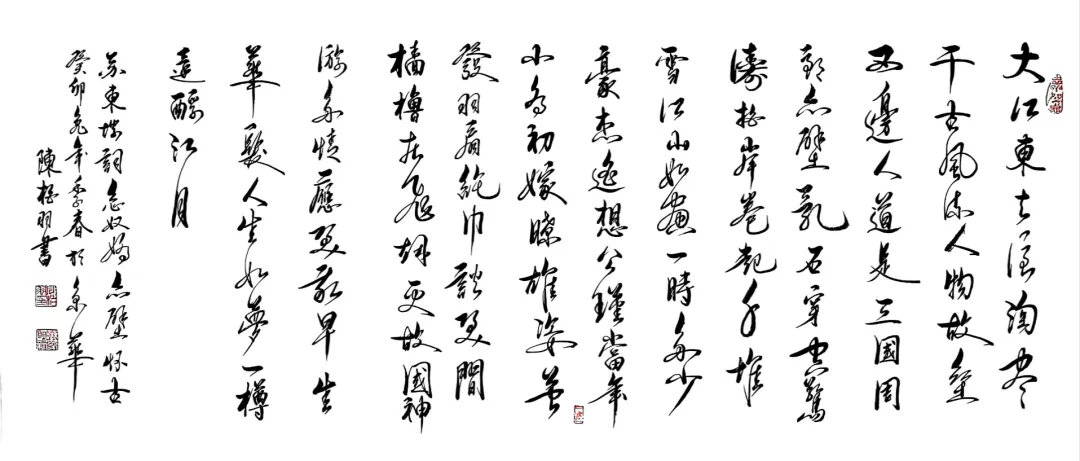 大江東去浪淘盡
千古風流人物故壘
西邊人道是三國周
郎赤壁亂石穿空驚
濤拍岸卷起千堆
雪江山如畫一時多少
豪杰遙想公瑾當年
小喬初嫁瞭雄姿英
發羽扇綸巾談笑間
檣櫓灰飛烟滅故國神
游多情應笑我早生
華髮人生如夢一樽
還酹江月
苏東坡詞念奴嬌赤壁怀古
癸卯兔年季春於京華
陳羽書